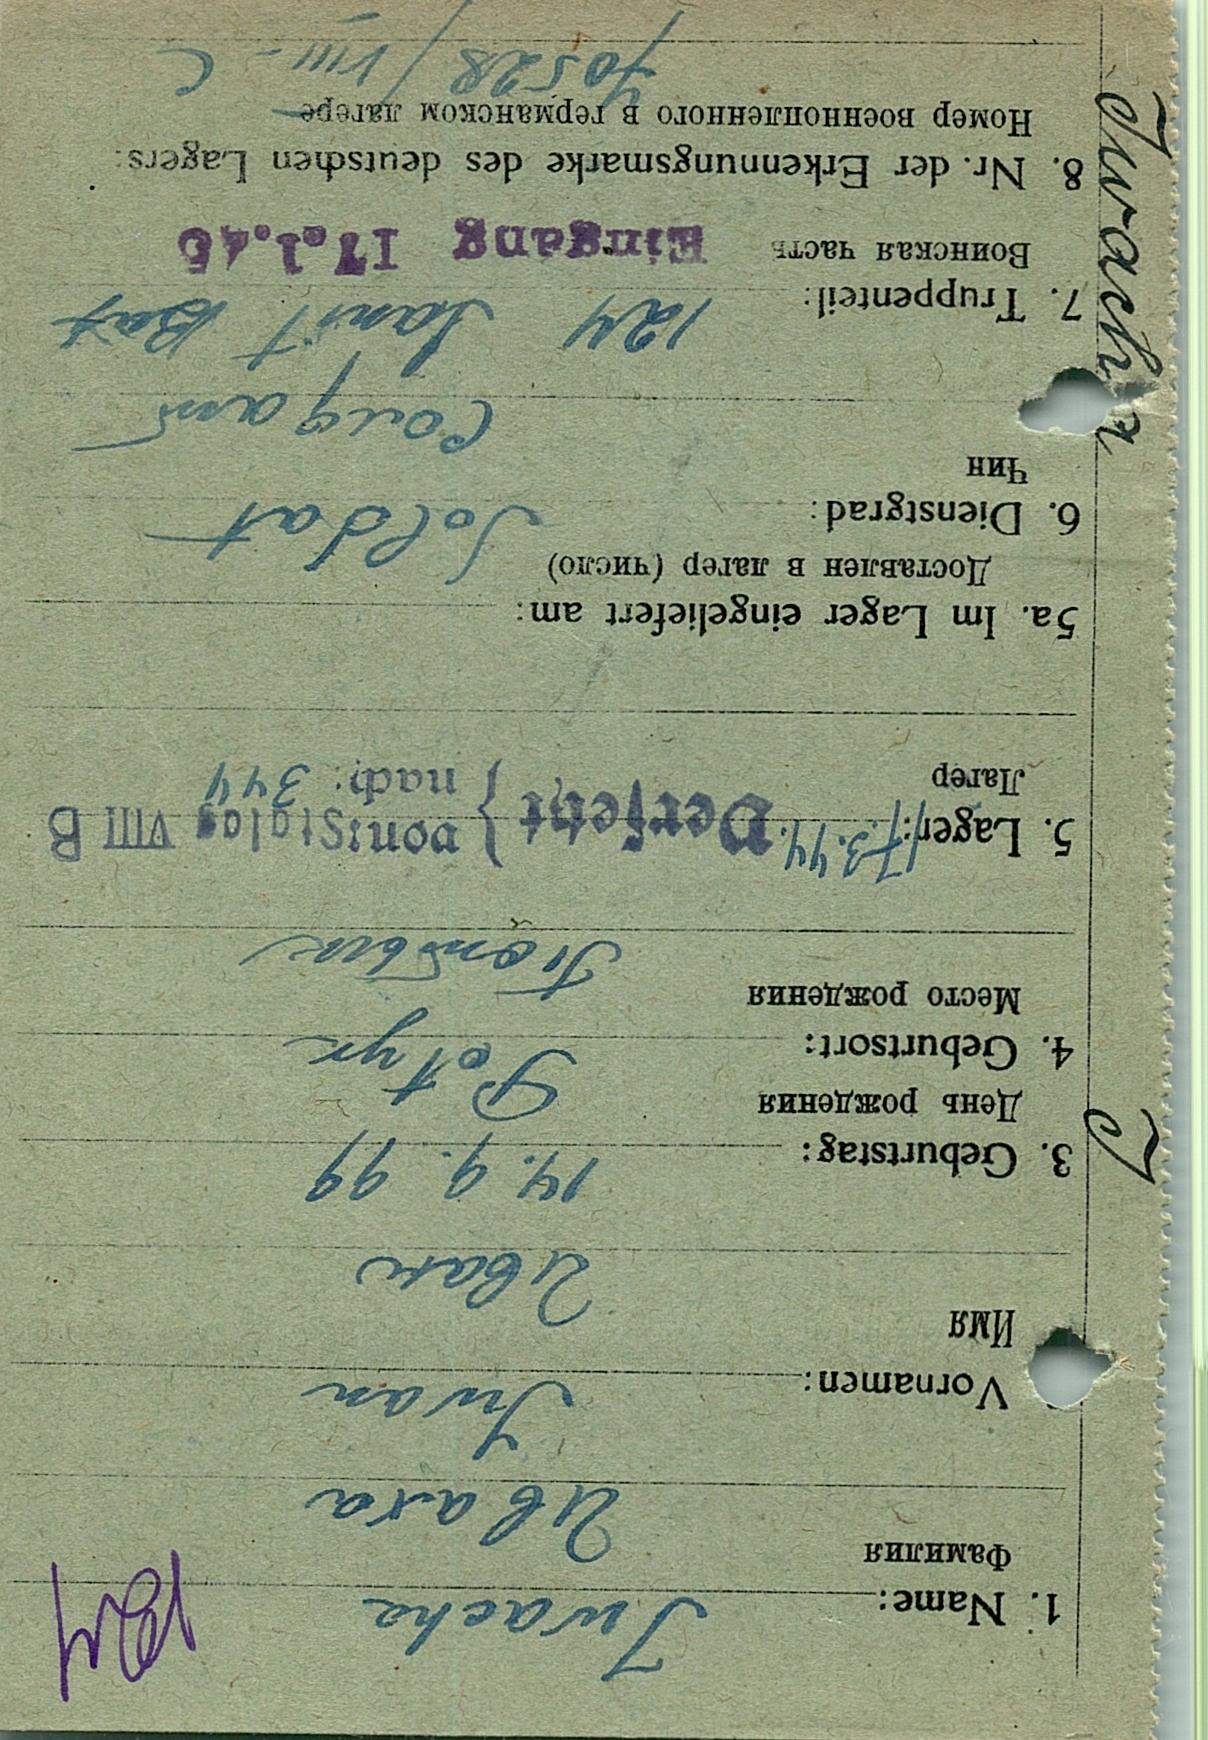 1. Name: Iwacha
Фамилия Иваха
Vornamen: Iwan
Имя Иван
3. Geburtstag: 14. 9. 99
День рождения
4. Geburtsort: Potyn
Место рождения
5. Lager: 17.3.44. Versetzt } von: Stalag VIII B
Лагер } nach: 344
5a. Im Lager eingeliefert am:
Доставлен в лагер (число)
6. Dienstgrad: Soldat
Чин Солдат
7. Truppenteil: 124 Sanit Bat
Воинская часть Eingang 17.1.45
8. Nr. der Erkennungsmarke des deutschen Lagers:
Номер военнопленного в германском лагере
70528/VIII-C
I
Iwacha